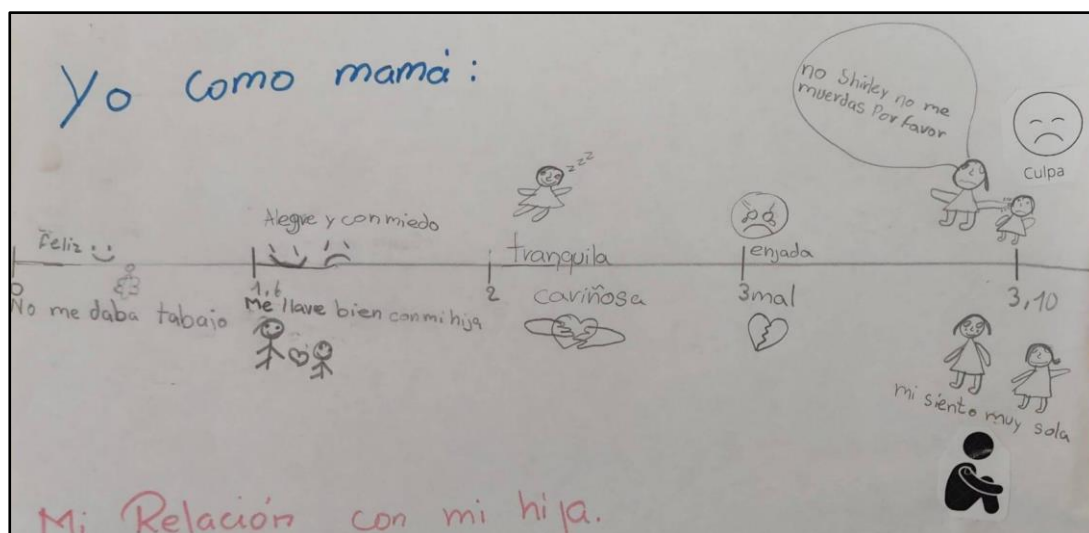 Yo como mamá:
no Shirley no me
muerdas Por favor
culpa
zzz
Feliz
Alegre y con miedo
tranquila
enjada
0
1,6
2
3mal
3,10
No me daba tabajo
Me llave bien con mi hija
cariñosa
mi siento muy sola
Mi Relación con mi hija.